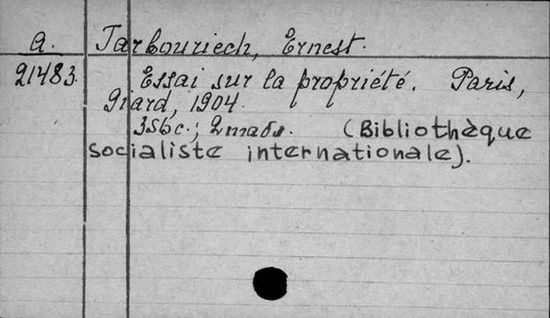 A. Tarbouriech, Ernest.
21483. Essai sur la propriété. Paris,
Giard, 1904.
356c.; 2 табл. (Bibliothèque
socialiste internationale).